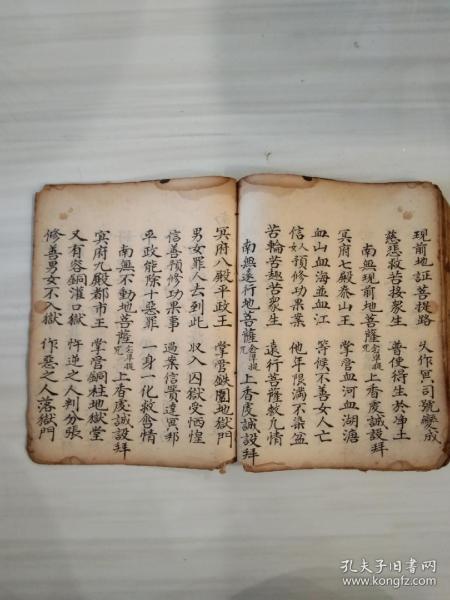 現前地証菩提路 久作冥司號變成
慈悲救苦接衆生 普使得生於净土
南無現前地菩薩 念準提咒 上香虔誠設拜
冥府七殿泰山王 掌管血河血湖溏
血山血海血血江 等候不善女人亡
信人預修功果案 他年限滿不染盆
苦輪苦趣苦衆生 遠行菩薩救凣情
南無遠行地菩薩 念準提咒 上香虔誠設拜
冥府八殿平政王 掌管鉄闈地獄門
男女罪人去到此 收入囚獄受恓惶
信善預修功果事 過案信貴達冥邦
平政能除十惡罪 一身一化救衆情
南無不動地菩薩 念準提咒 上香虔誠設拜
冥府九殿都市王 掌管銅柱地獄堂
又有容銅灌口獄 忤逆之人判分張
修善男女不入獄 作惡之人落獄門
孔夫子旧書网
www.kongfz.com